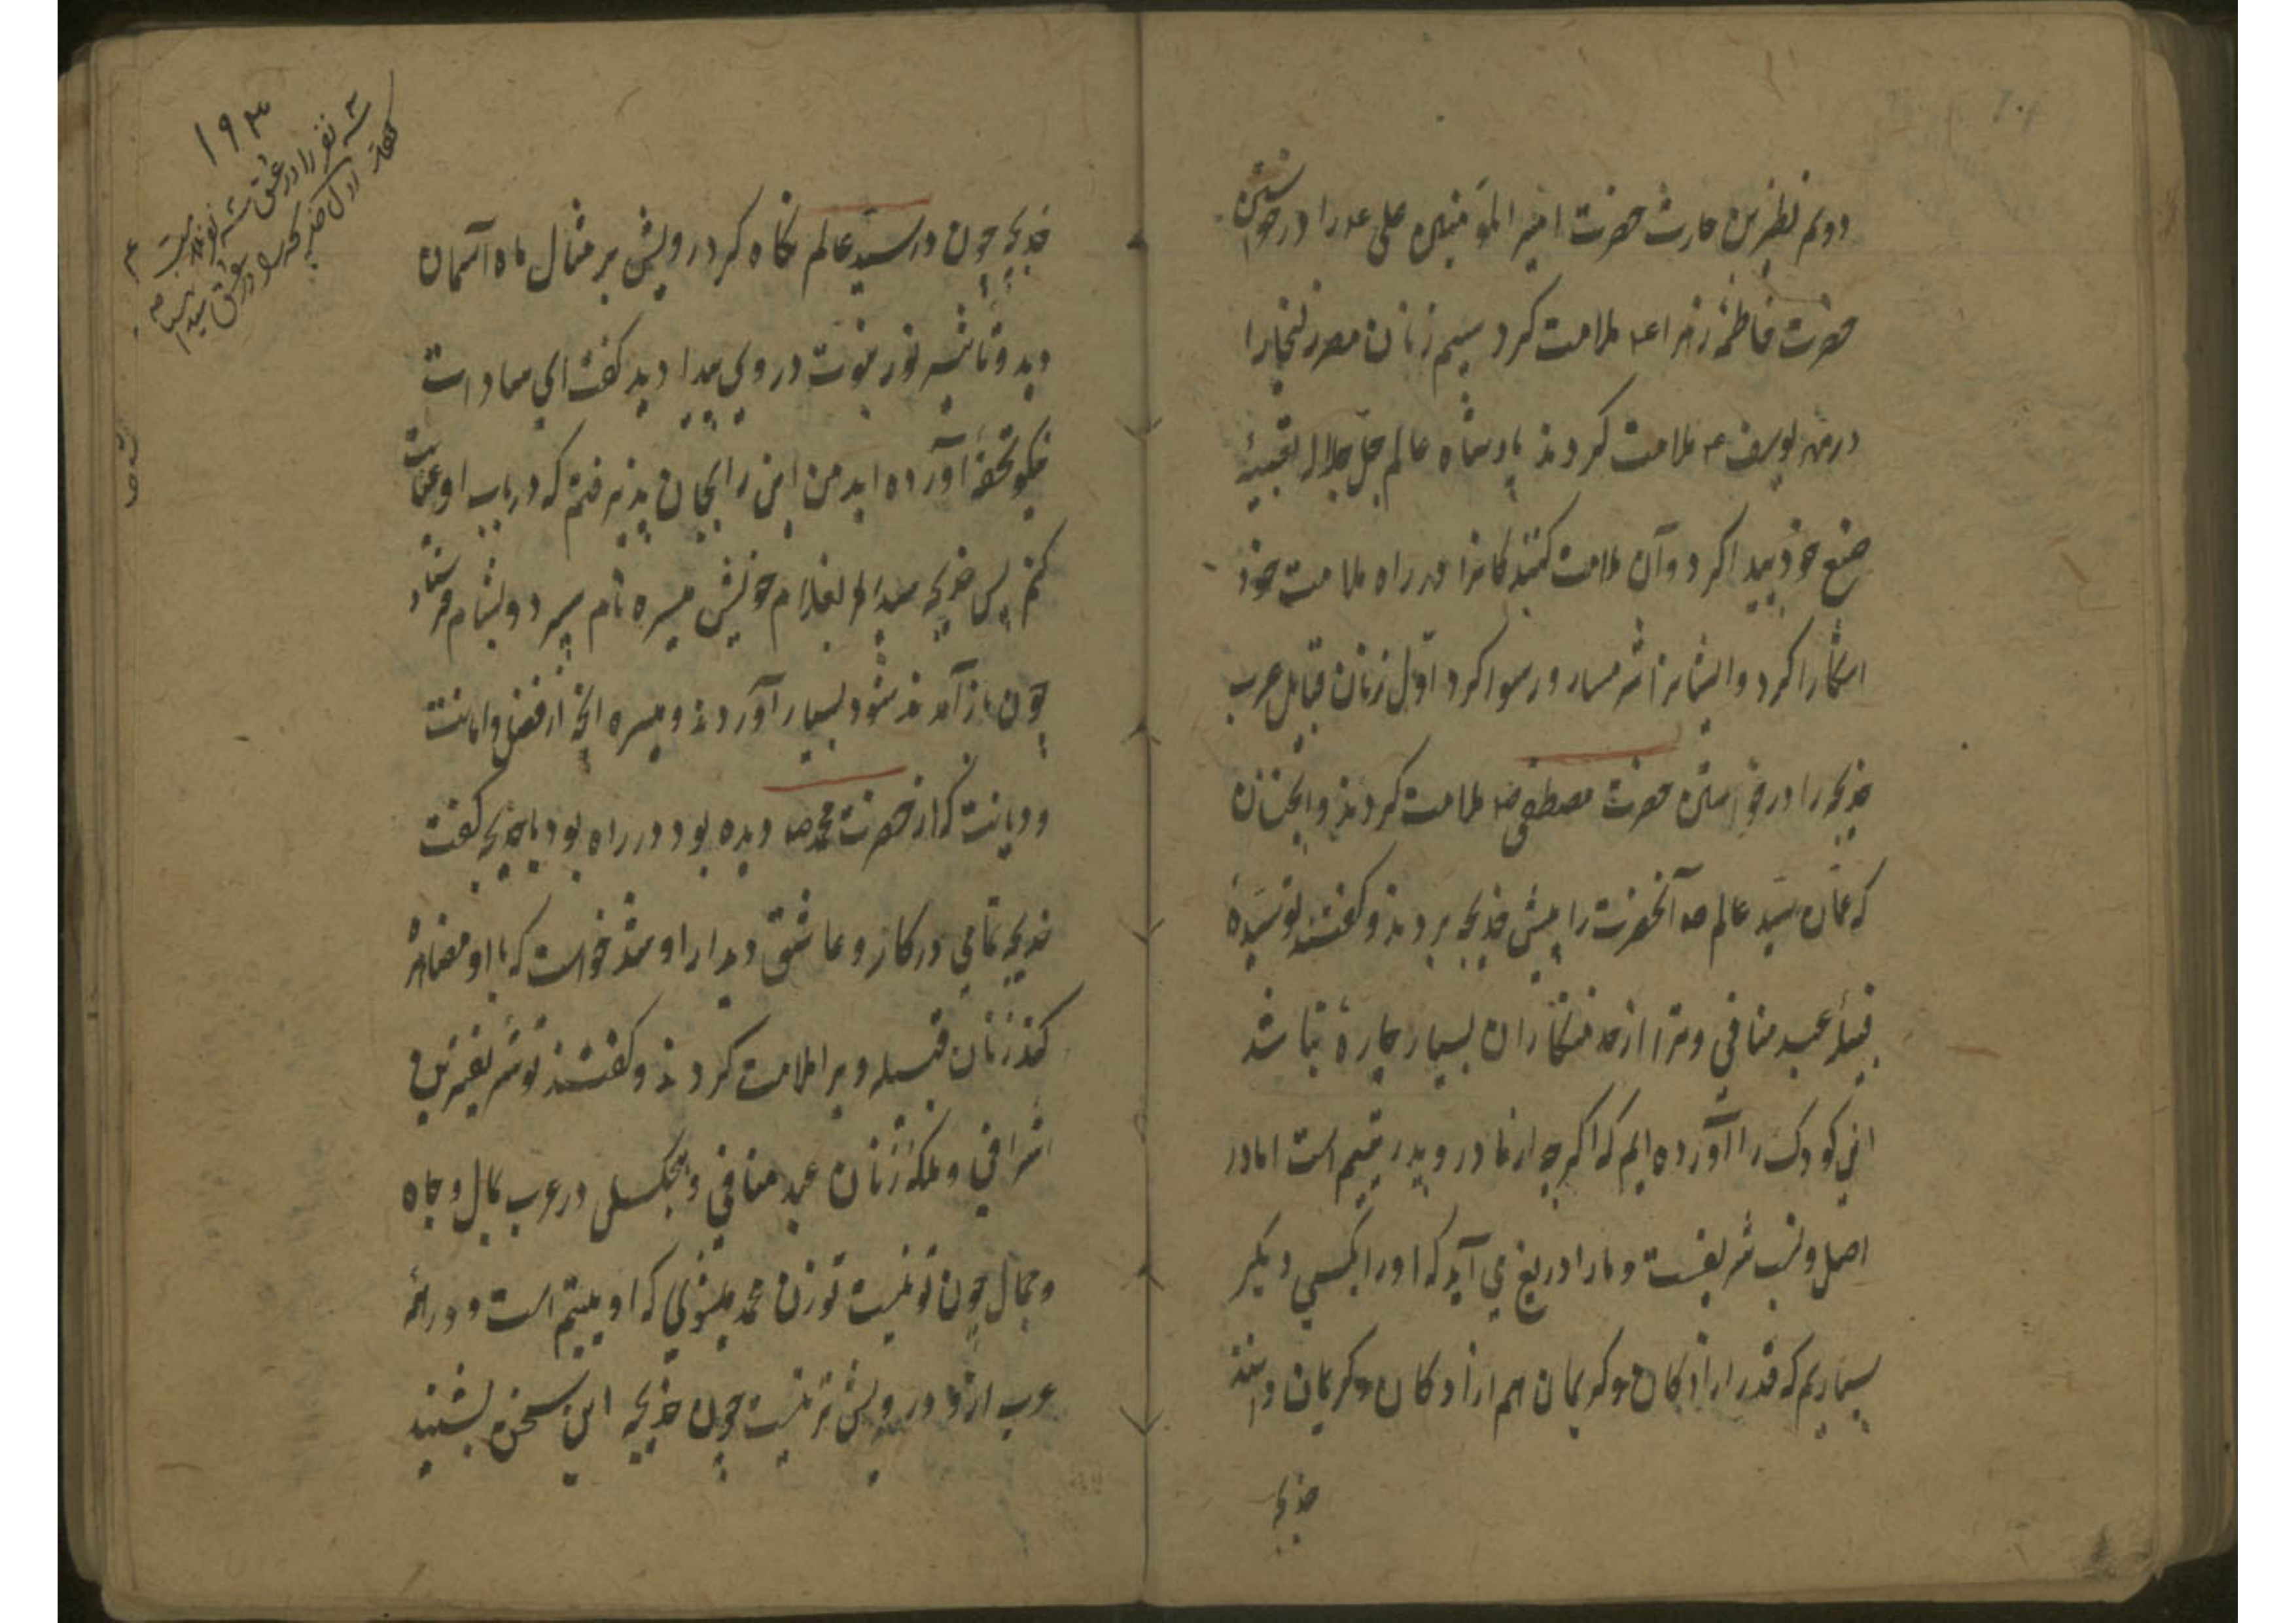 دویم نظیر بن حارث حضرت امیر المؤمنین علی ع را در خواستن
حضرت فاطمهٔ زهرا ع ملامت کرد سیم زنان مصر زلیخا را
در مهر یوسف ع ملامت کردند پادشاه عالم جل جلاله
صنع خود پیدا کرد و آن ملامت کنندکانرا در راه ملامت خود
اشکارا کرد و ایشانرا شرمسار و رسوا کرد اوّل زنان قبایل عرب
خدیجه را در خواستن حضرت مصطفی ص ملامت کردند و آنچنان
که عمّان سیّد عالم ص آنحضرت را پیش خدیجه بردند و کفتند تو سیّدهٔ
قبیلهٔ عبد منافی و ترا از خدمتکاران بسیار چارهٔ نباشد
این کودک را آورده ایم که اکرچه از مادر و پدر یتیم است اما در
اصل و نسب شریفست و ما را دریغ می آید که او را بکسی دیکر
سپاریم که قدر ازادکان و کریمان هم ازادکان و کریمان دانند
خدیجه
۱۹۳
سه نفر را در عشق سه نفر ملامت
کردند اول خدیجه را در عشق سید انبیا
خدیجه چون در سیّد عالم نکاه کرد رویش بر مثال ماه آسمان
دید و تاثیر نور نبوت در وی پیدا دید کفت ای
نیکو تحفهٔ آورده اید من این را بجان پذیرفتم که در باب او عنایت
کنم پس خدیجه بغلام خویش میسره نام سپرد و بشام فرستاد
چون باز آمدند سود بسیار آوردند و میسره انچه از فضل و امانت
و دیانت که از حضرت محمد ص دیده بود در راه بود با خدیجه بکفت
خدیجه تمامی در کار و عاشق دیدار او شد خواست که با او مصاهره
کند زنان قبیله ویرا ملامت کردند و کفتند تو شریفترین
اشرافی و ملکهٔ زنان عبد منافی و هیچکسی در عرب بمال و جاه
و جمال چون تو نیست تو زن محمد میشوی که او یتیم است و در همه
عرب ازو درویش تر نیست چون خدیجه این سخن بشنید